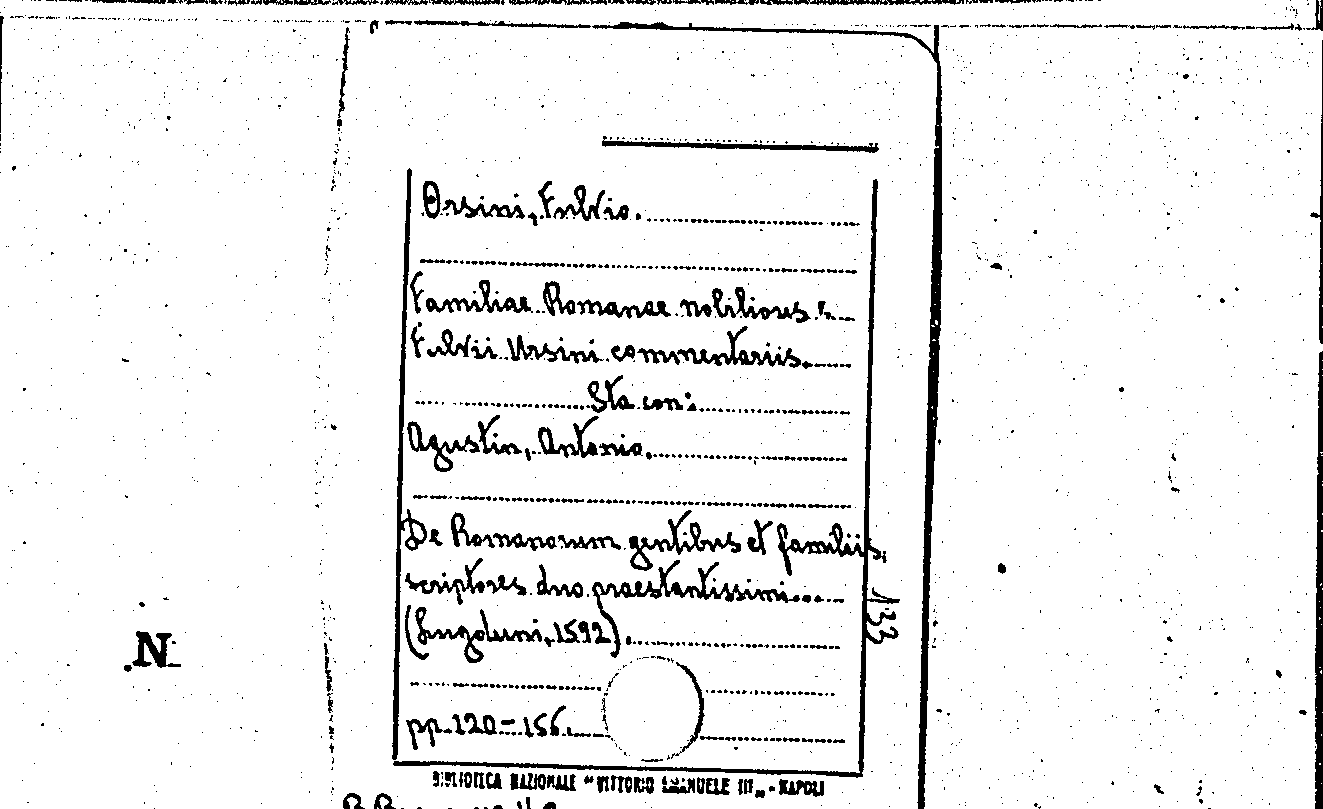 Orsini, Fulvio.
Familiae Romanae nobiliores
Fulvii Ursini commentariis.
Sta con:
Agustin, Antonio.
De Romanorum gentibus et familiis,
scriptores duo praestantissimi...
(Lugduni, 1592).
133
N
pp. 120-156.
BIBLIOTECA NAZIONALE "VITTORIO EMANUELE III" - NAPOLI